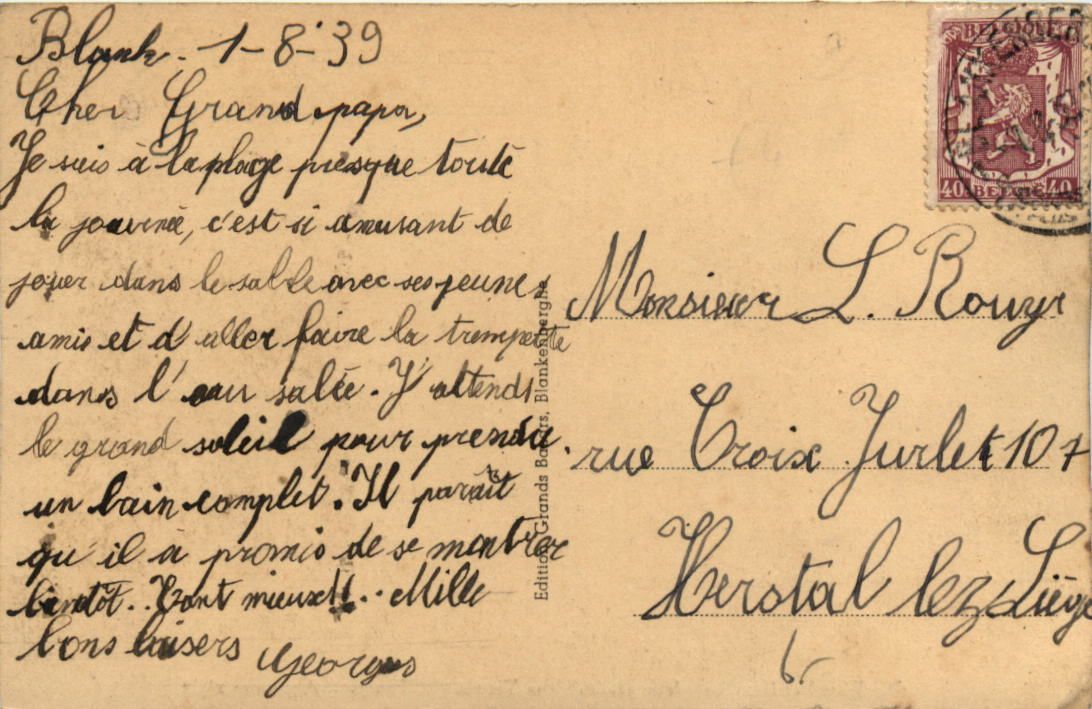 Blank. 1-8-39
Cher Grand papa,
Je suis à la plage presque toute
la journée, c'est si amusant de
jouer dans le sable avec ses jeunes
amis et d'aller faire la trempette
dans l'eau salée. J'attends
le grand soleil pour prendre
un bain complet. Il paraît
qu'il a promis de se montrer
bientôt.. Tant mieux!!.. Mille
bons baisers
Georges
Edition Grands Bazars, Blankenberghe
BELGIQUE
40 BELGIE 40
Monsieur L. Rouyr
rue Croix Jurlet 107
Herstal lez Liège